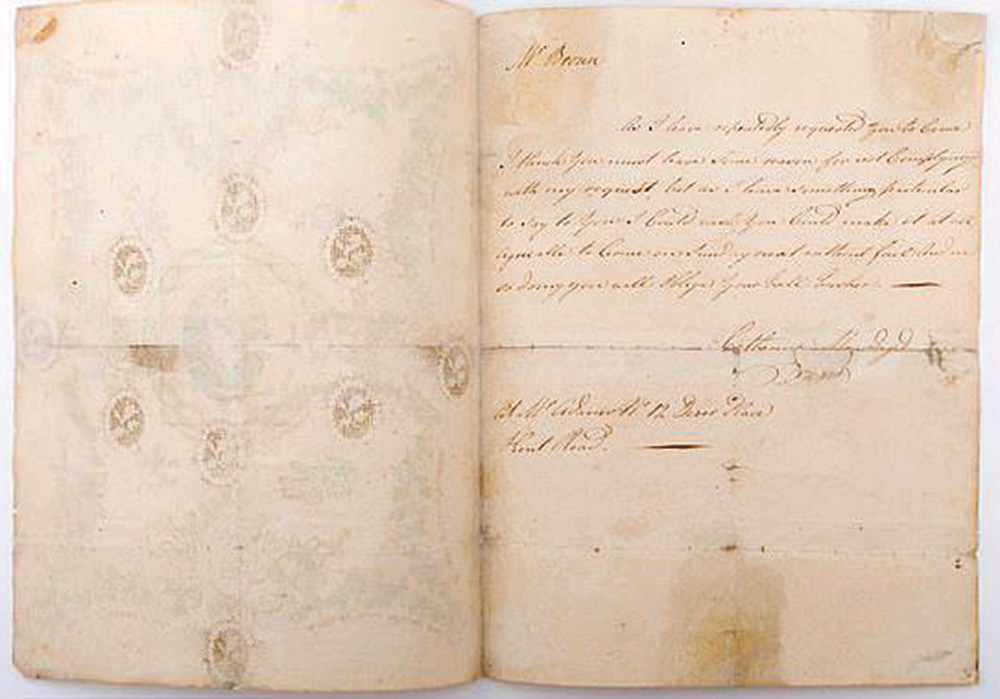 Mr Brown
As I have repeatedly requested you to Come
I think you must have Some reason for not Complying
with my request, but as I have something particular
to say to you I Could wish you Could make it at all
agreeable to Come on Sunday next without fail And in
so doing you will Oblige your well wisher
Catherine Mossday
Dover Place
Kent Road.